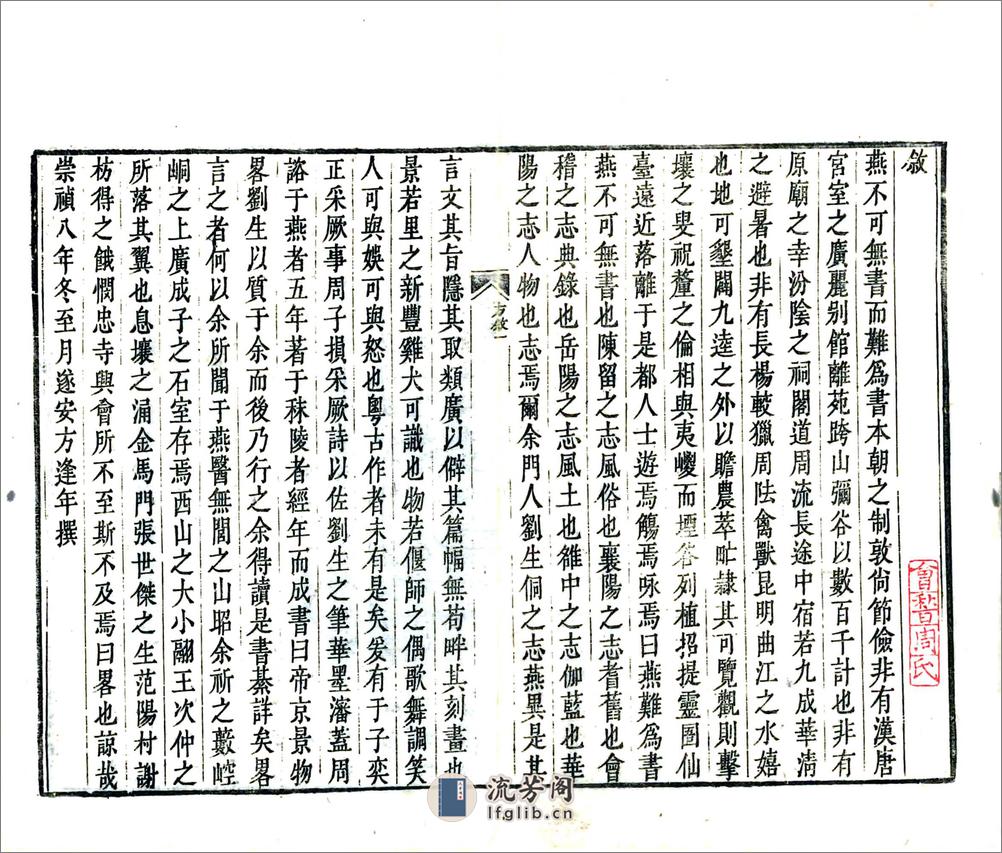 敘
燕不可無書而難爲書本朝之制敦尙節儉非有漢唐
宮室之廣麗别館離苑跨山彌谷以數百千計也非有
原廟之幸汾陰之祠閣道周流長途中宿若九成華淸
之避暑也非有長楊較獵周阹禽獸昆明曲江之水嬉
也地可墾闢九逵之外以贍農萃甿隷其可覽觀則擊
壤之叟祝釐之倫相與夷巙而堙畚列植招提靈圉仙
臺遠近落離于是都人士遊焉觴焉咏焉曰燕難爲書
燕不可無書也陳留之志風俗也襄陽之志耆舊也會
稽之志典錄也岳陽之志風土也雒中之志伽藍也華
陽之志人物也志焉爾余門人劉生侗之志燕異是其
方敘一
言文其旨隱其取類廣以僻其篇幅無苟畔其刻畫也
景若里之新豐雞犬可識也物若偃師之偶歌舞調笑
人可與娛可與怒也粤古作者未有是矣爰有于子奕
正采厥事周子損采厥詩以佐劉生之筆華墨瀋蓋周
諮于燕者五年著于秣陵者經年而成書曰帝京景物
畧劉生以質于余而後乃行之余得讀是書綦詳矣畧
言之者何以余所聞于燕醫無閭之山昭余祈之藪崆
峒之上廣成子之石室存焉西山之大小翮王次仲之
所落其翼也息壤之涌金馬門張世傑之生范陽村謝
枋得之餓憫忠寺與會所不至斯不及焉曰畧也諒哉
崇禎八年冬至月遂安方逢年撰
會稽周氏
流芳阁
lfglib.cn